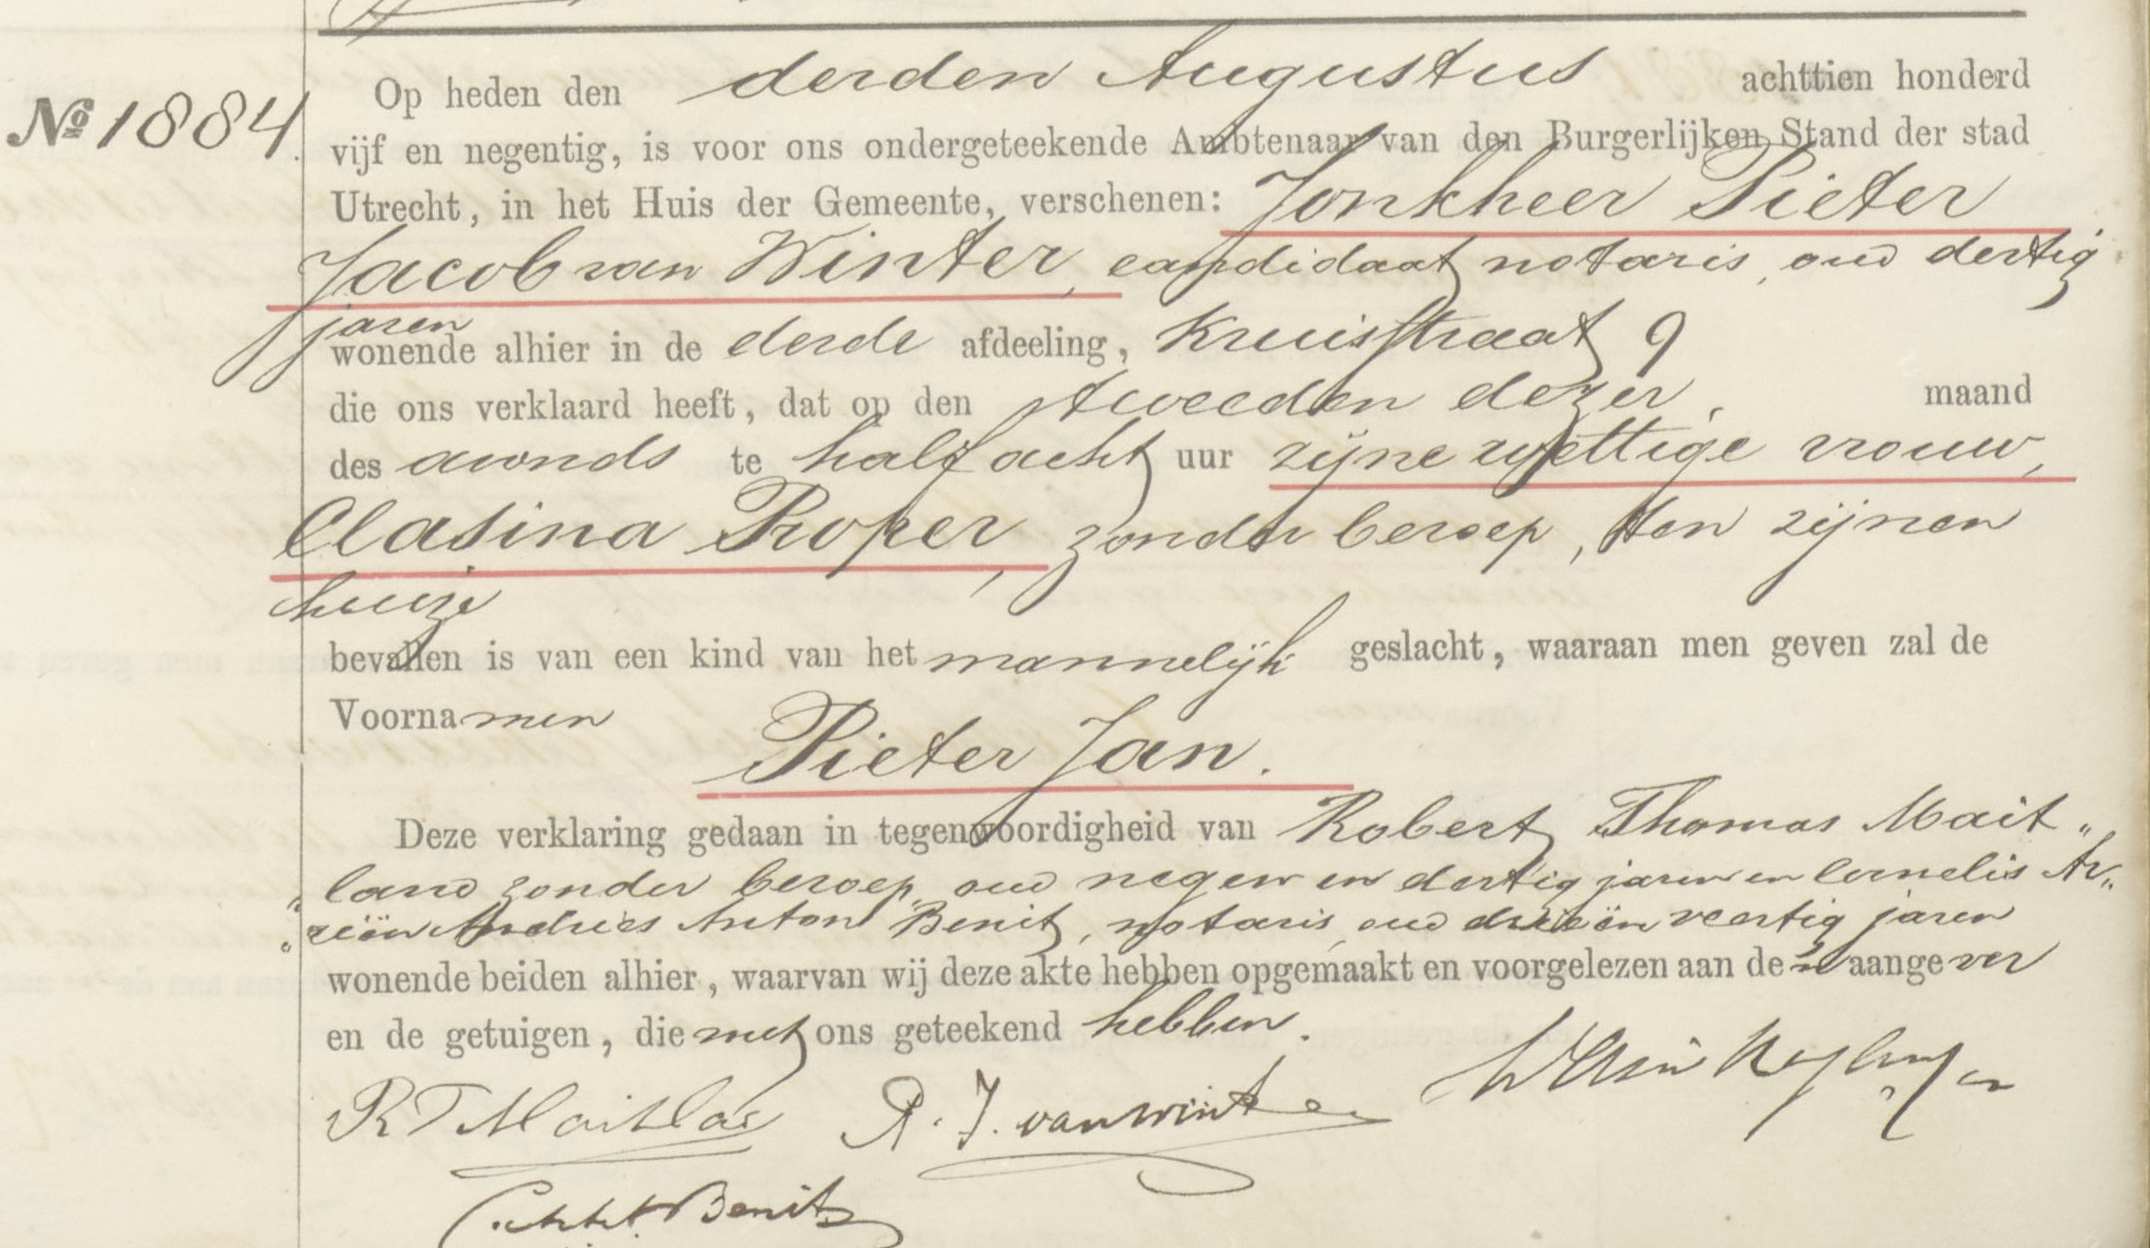 Op heden den derden Augustus achttien honderd
№ 1884.
vijf en negentig, is voor ons ondergeteekende Ambtenaar van den Burgerlijken Stand der stad
Utrecht, in het Huis der Gemeente, verschenen: Jonkheer Pieter
Jacob van Winter, candidaat notaris, oud dertig
jaren
wonende alhier in de derde afdeeling, Kruisstraat 9
die ons verklaard heeft, dat op den tweeden dezer, maand
des avonds te half acht uur zijne wettige vrouw,
Clasina Proper, zonder beroep, ten zijnen
huize
bevallen is van een kind van het mannelijk geslacht, waaraan men geven zal de
Voornamen
Pieter Jan.
Deze verklaring gedaan in tegenwoordigheid van Robert Thomas Mait„
„land zonder beroep, oud negen en dertig jaren en Cornelis Ar„
„reiën Andries Anton Benit, notaris, oud drieën veertig jaren
wonende beiden alhier, waarvan wij deze akte hebben opgemaakt en voorgelezen aan den aangever
en de getuigen, die met ons geteekend hebben.
R T Maitland P. J. van Winter
Benit